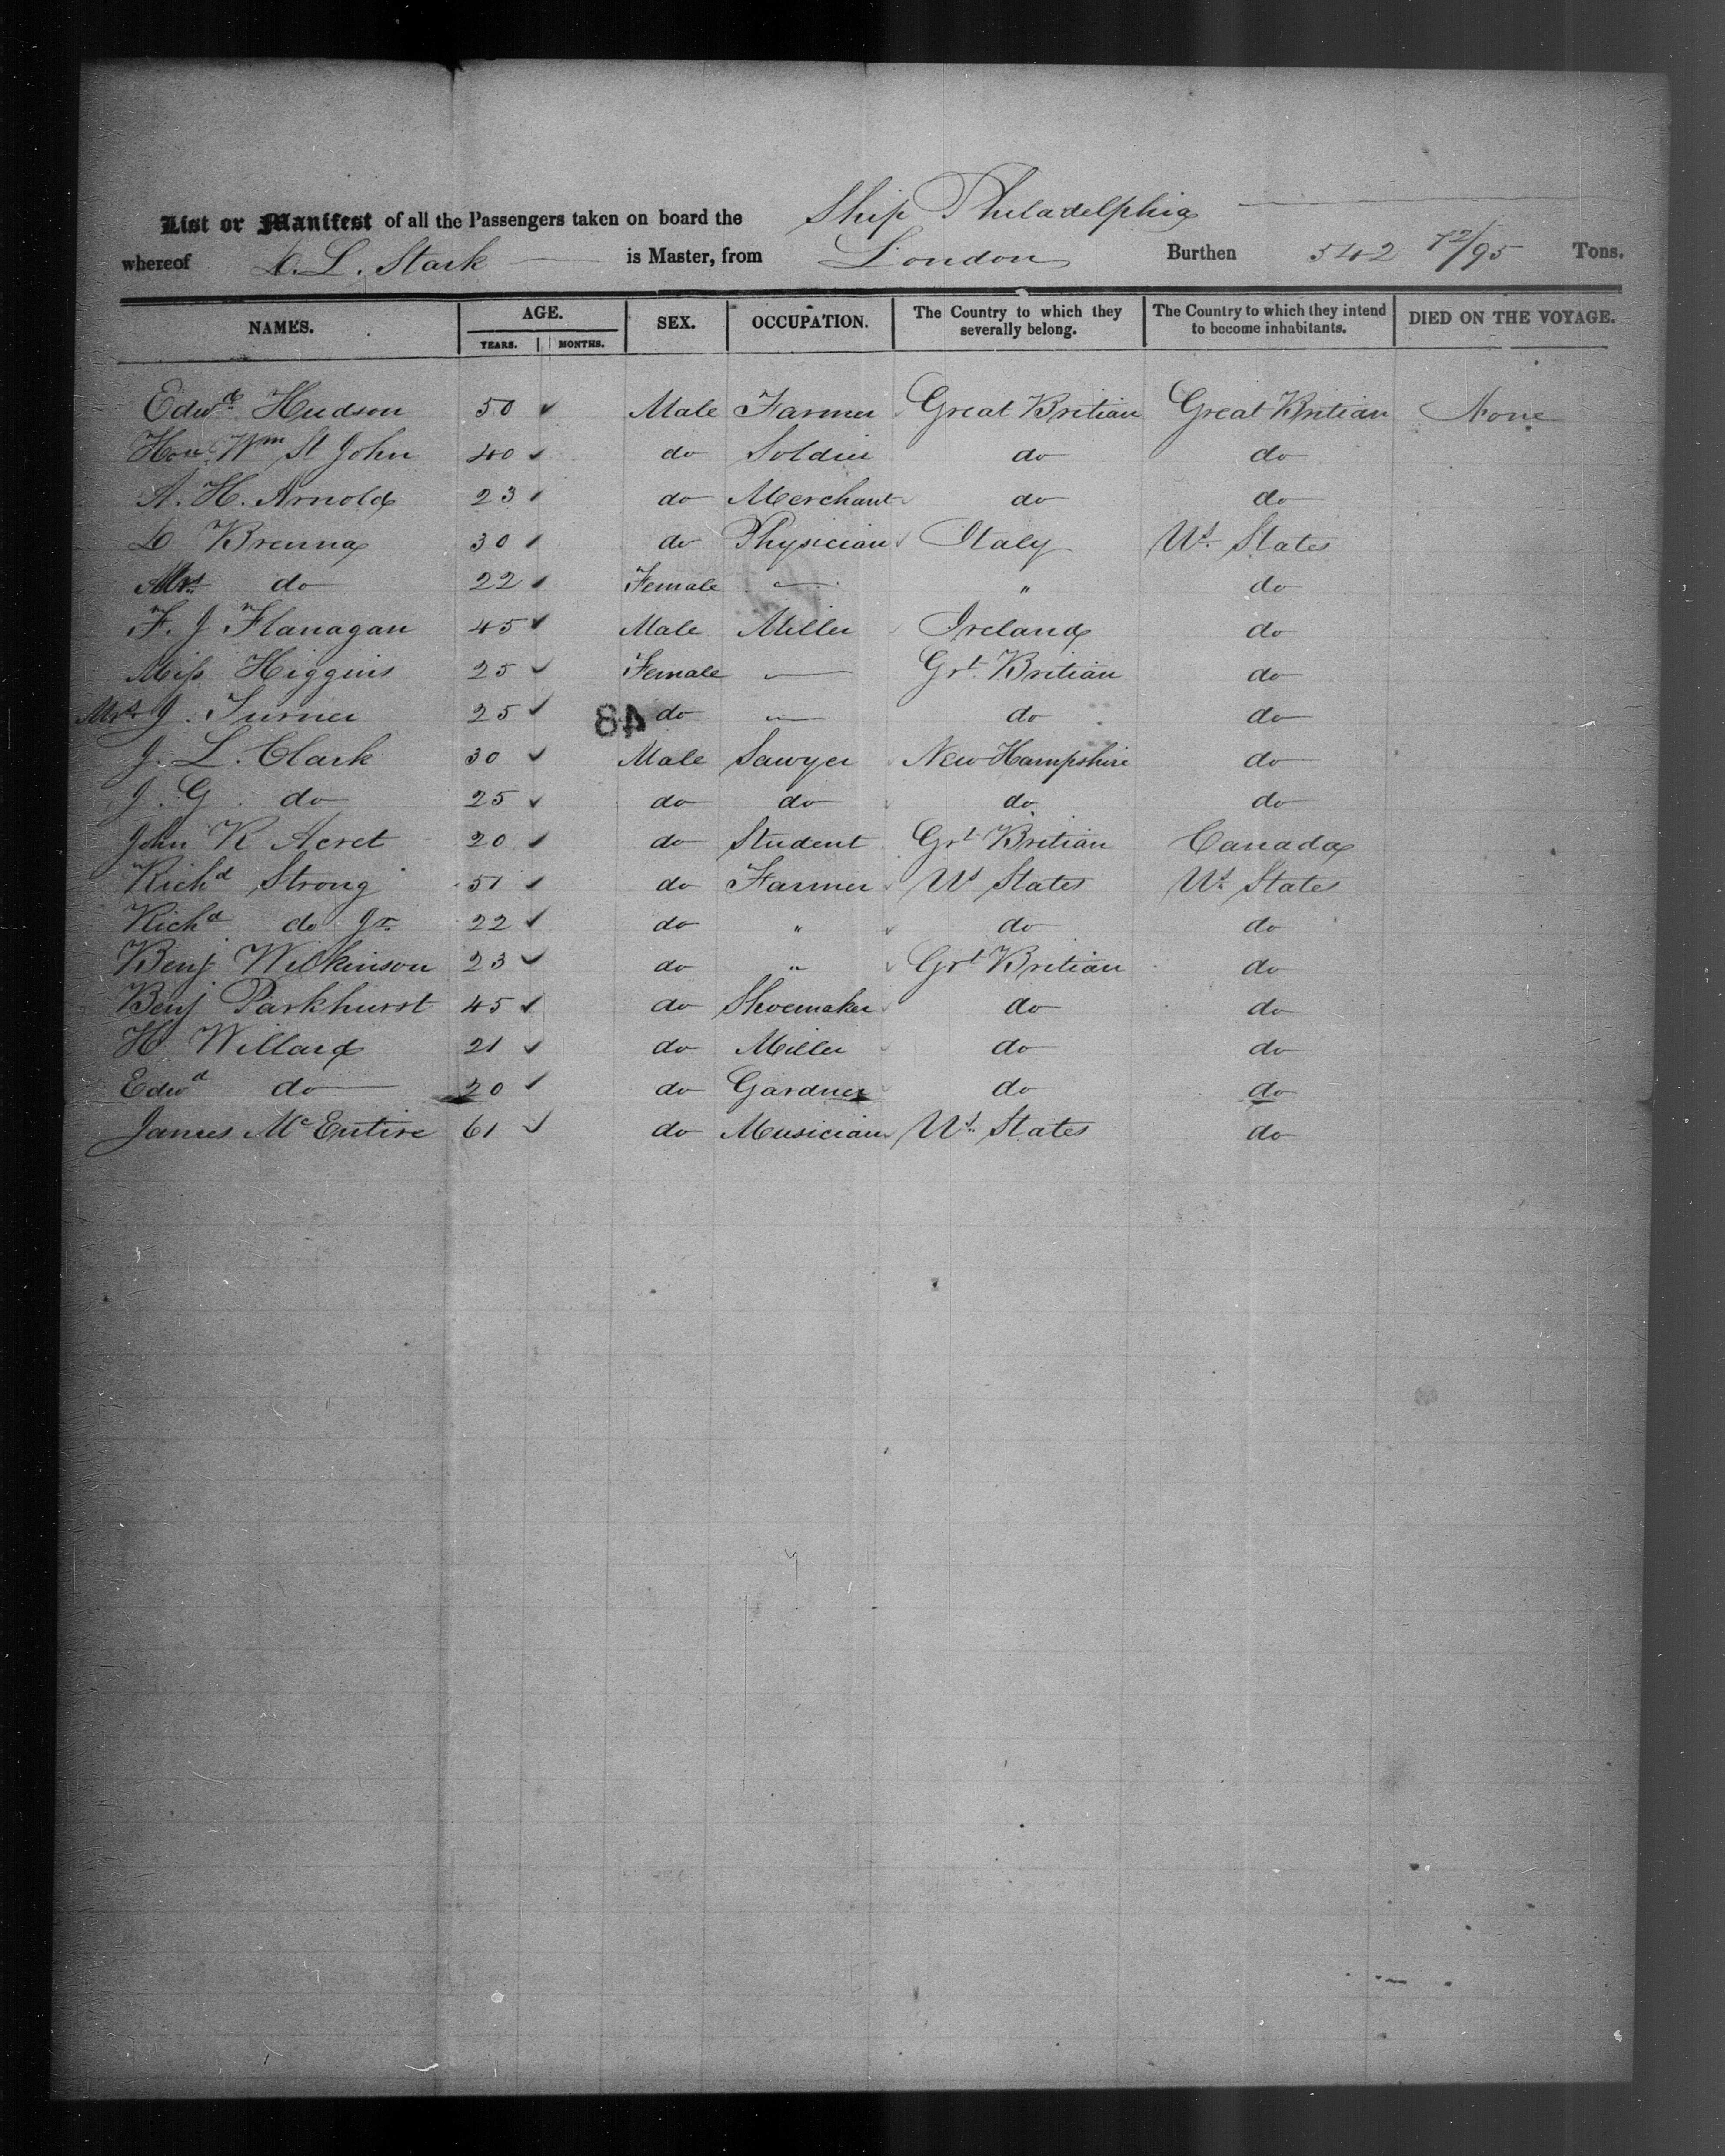 List or Manifest of all the Passengers taken on board the Ship Philadelphia
whereof L. Stark is Master, from London Burthen 542 72/95 Tons.
NAMES. AGE. YEARS. MONTHS. SEX. OCCUPATION. The Country to which they severally belong. The Country to which they intend to become inhabitants. DIED ON THE VOYAGE.
Edwd Hudson 50 Male Farmer Great Britian Great Britian None
Hon Wm St John 40 do Soldier do do
A. H. Arnold 23 do Merchant do do
Brenna 30 do Physician Italy Ud. States
Mrs do 22 Female — " do
F. J Flanagan 45 Male Miller Ireland do
Miss Higgins 25 Female — Grt Britian do
Mrs J. Turner 25 do — do do
48
J. L. Clark 30 Male Sawyer New Hampshire do
J. G. do 25 do do do do
John R Acret 20 do Student Grt Britian Canada
Richd Strong 51 do Farmer Ud States Ud. States
Richd do Jr. 22 do " do do
Benj Wilkinson 23 do " Grt Britian do
Benj Parkhurst 45 do Shoemaker do do
H. Willard 21 do Miller do do
Edwd do 20 do Gardner do do
James McEntire 61 do Musician Ud. States do